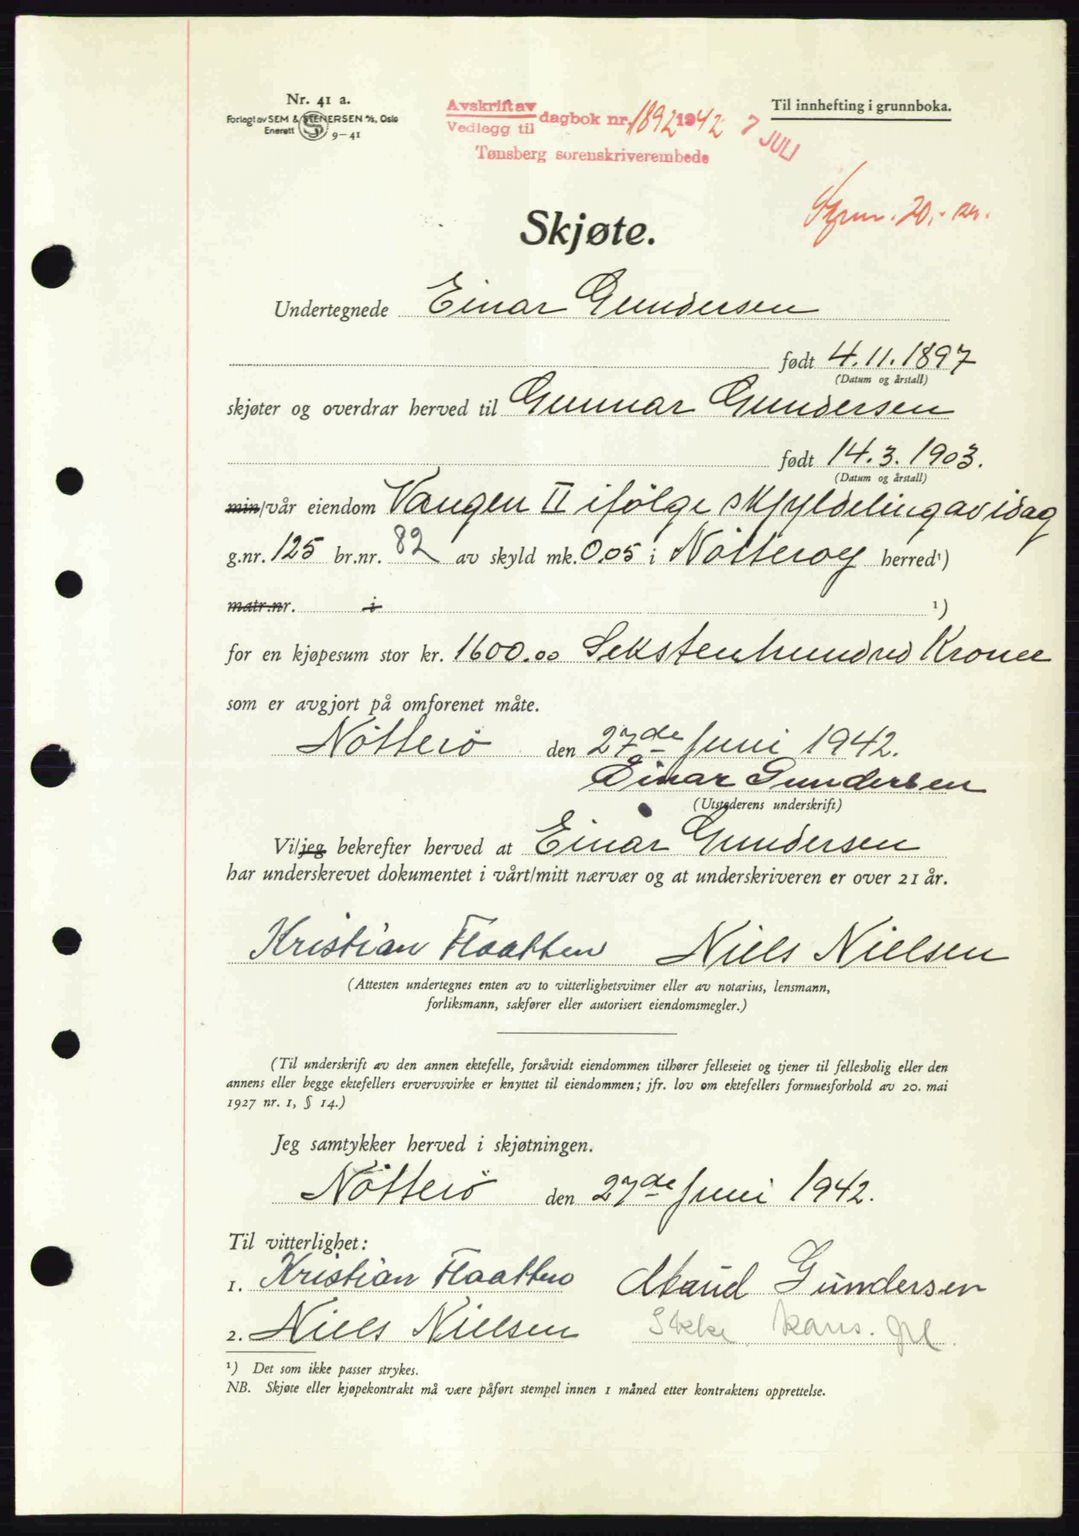 Nr. 41 a.
Forlagt av SEM & STENERSEN A/S, Oslo
Enerett 9-41
Avskrift av
Vedlegg til dagbok nr. 1892 1942 7 JULI
Tønsberg sorenskriverembede
Til innhefting i grunnboka.
20,- kr.
Skjøte.
Undertegnede Einar Gundersen
født 4.11.1897
(Datum og årstall)
skjøter og overdrar herved til Gunnar Gundersen
født 14.3.1903.
(Datum og årstall)
min/vår eiendom Vangen II ifölge skyldeling av idag
g.nr. 125 br.nr. 82 av skyld mk. 0,05 i Nötteröy herred¹)
matr.nr. i ¹)
for en kjøpesum stor kr. 1600.00 Sekstenhundred Kroner
som er avgjort på omforenet måte.
Nötterö den 27de Juni 1942.
Einar Gundersen
(Utstederens underskrift)
Vi/jeg bekrefter herved at Einar Gundersen
har underskrevet dokumentet i vårt/mitt nærvær og at underskriveren er over 21 år.
Kristian Flaatten Niels Nielsen
(Attesten undertegnes enten av to vitterlighetsvitner eller av notarius, lensmann,
forliksmann, sakfører eller autorisert eiendomsmegler.)
(Til underskrift av den annen ektefelle, forsåvidt eiendommen tilhører felleseiet og tjener til fellesbolig eller den
annens eller begge ektefellers ervervsvirke er knyttet til eiendommen; jfr. lov om ektefellers formuesforhold av 20. mai
1927 nr. 1, § 14.)
Jeg samtykker herved i skjøtningen.
Nötterö den 27de Juni 1942.
Til vitterlighet:
1. Kristian Flaatten Maud Gundersen
2. Niels Nielsen Ikke kons.
¹) Det som ikke passer strykes.
NB. Skjøte eller kjøpekontrakt må være påført stempel innen 1 måned etter kontraktens opprettelse.